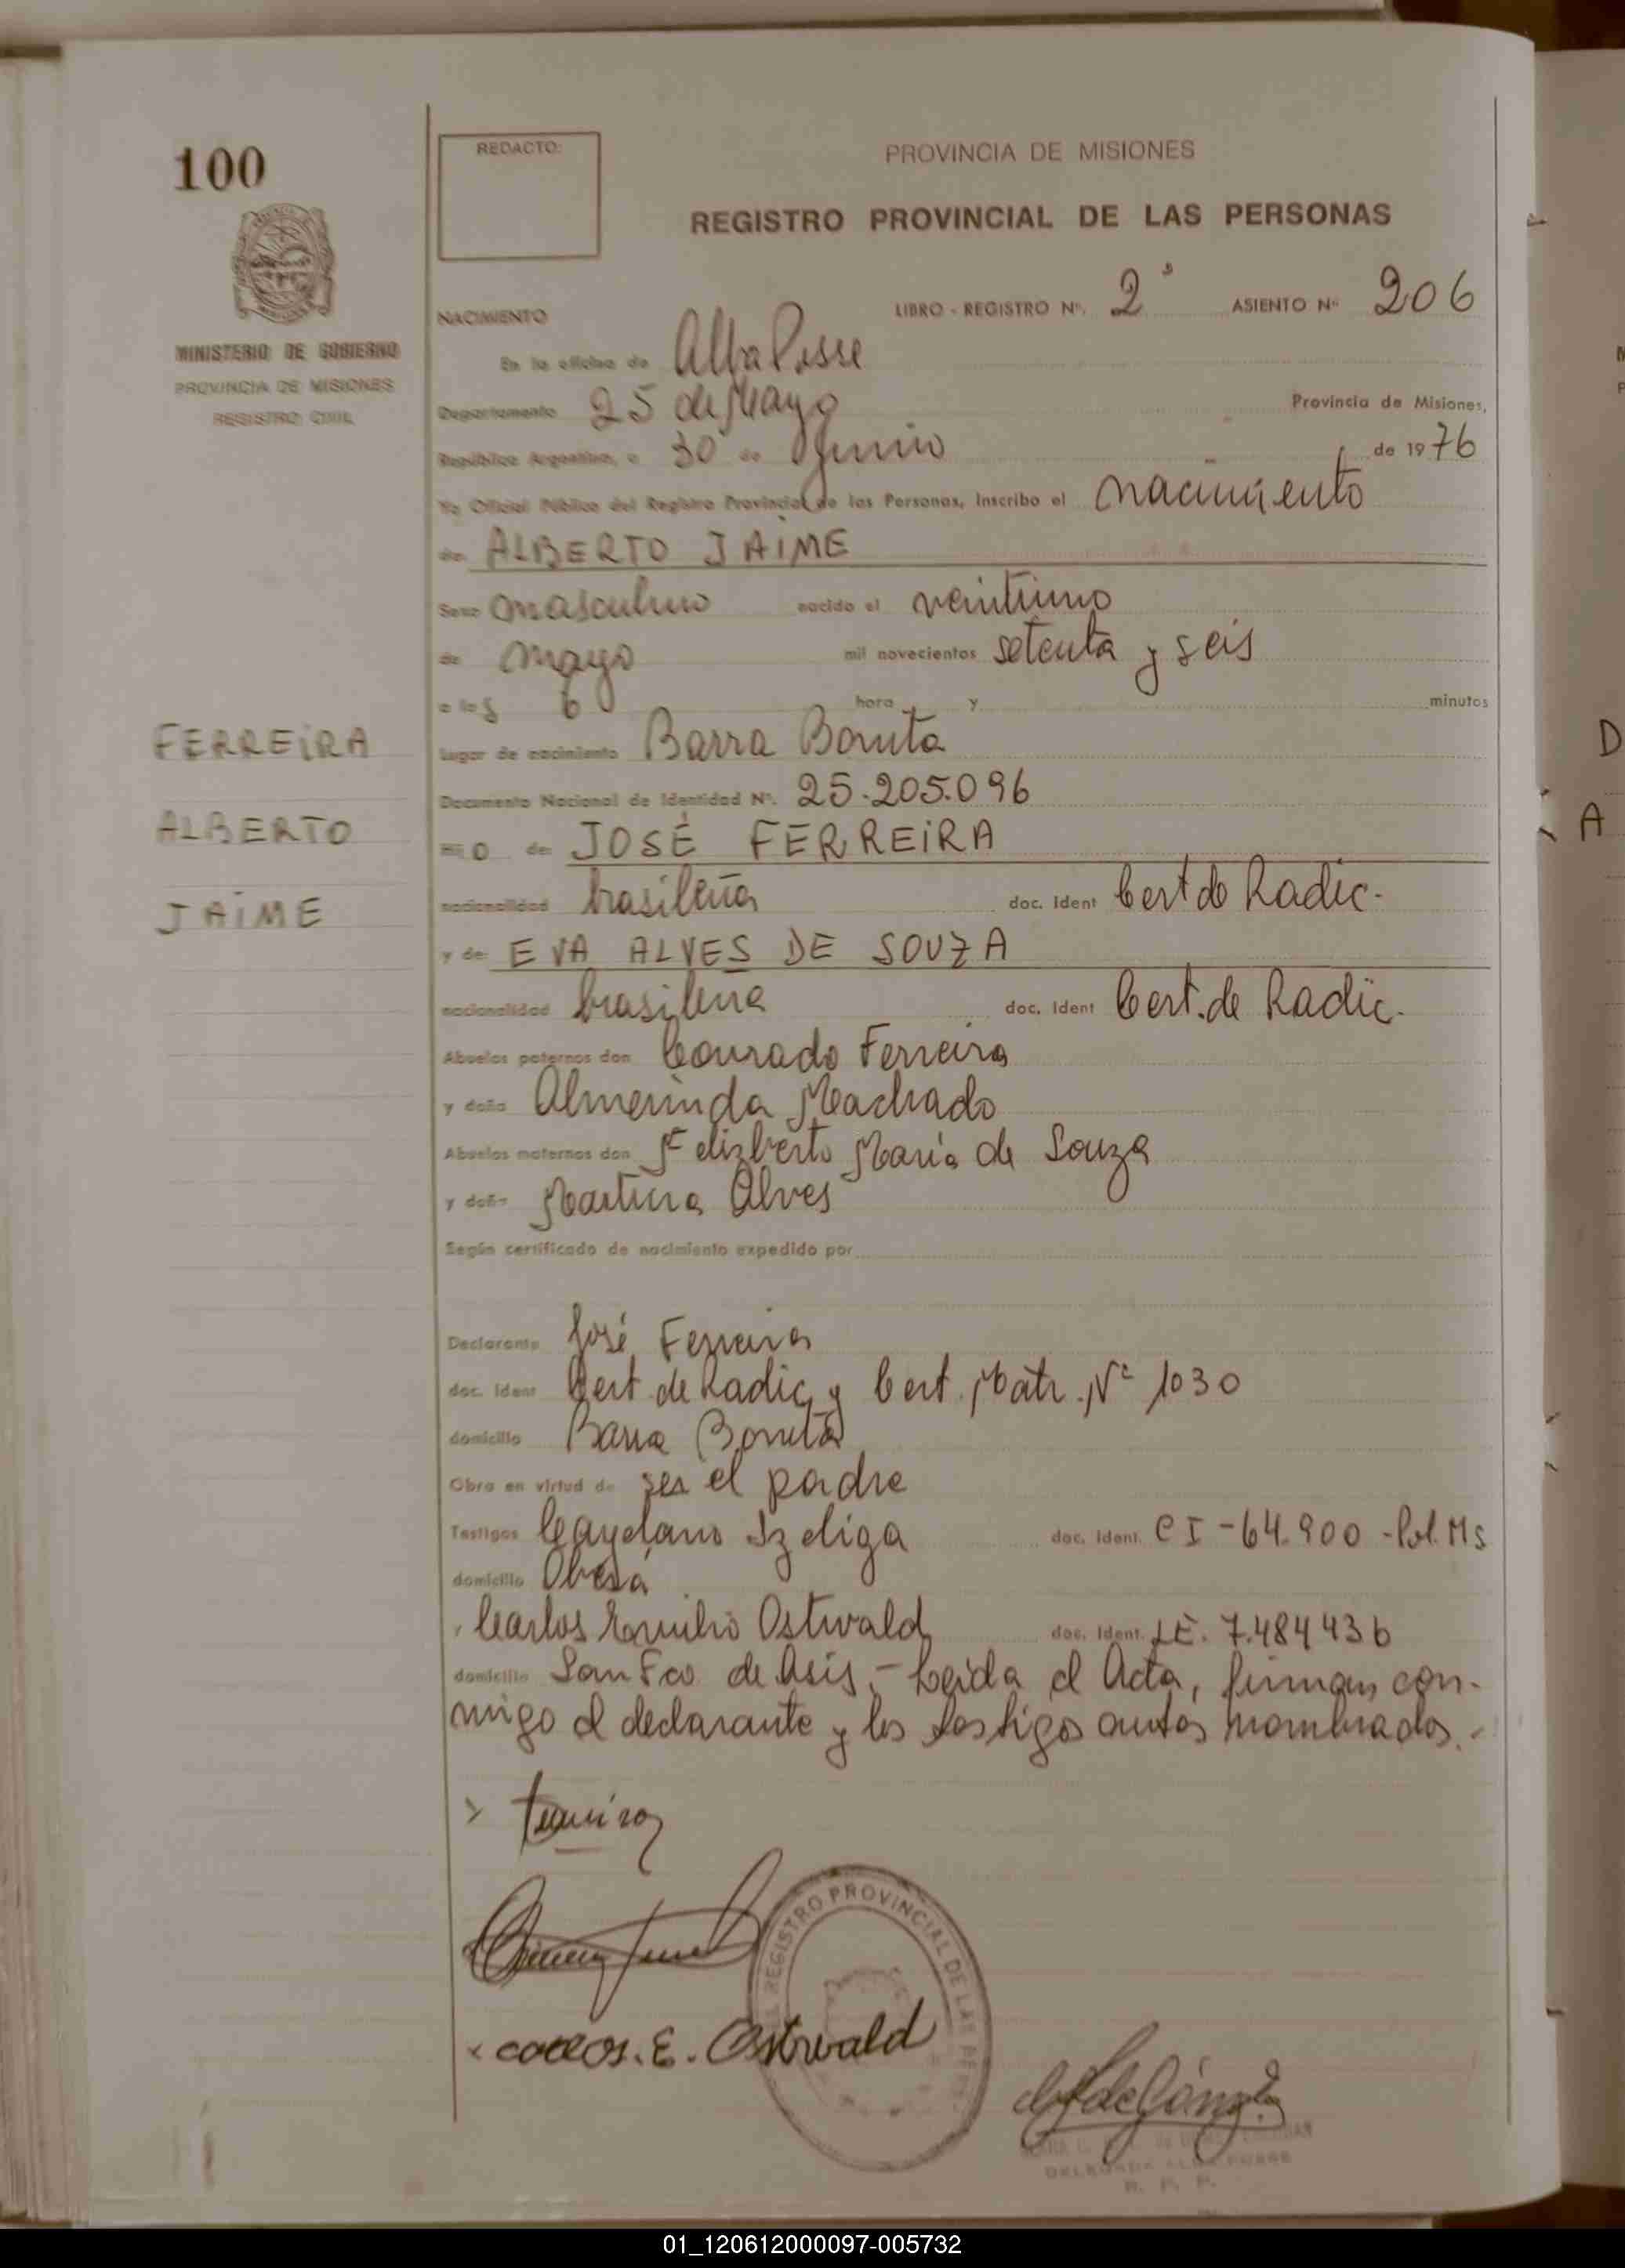 100
MINISTERIO DE GOBIERNO
PROVINCIA DE MISIONES
REGISTRO CIVIL
FERREIRA
ALBERTO
JAIME
REDACTO:
PROVINCIA DE MISIONES
REGISTRO PROVINCIAL DE LAS PERSONAS
LIBRO - REGISTRO Nº. 2º ASIENTO Nº 206
NACIMIENTO
En la oficina de Alba Posse
Departamento 25 de Mayo Provincia de Misiones,
República Argentina, a 30 de Junio de 1976
Yo Oficial Público del Registro Provincial de las Personas, Inscribo el nacimiento
de ALBERTO JAIME
Sexo masculino nacido el veintiuno
de mayo mil novecientos setenta y seis
a las 6 hora y minutos
Lugar de nacimiento Barra Bonita
Documento Nacional de Identidad Nº. 25.205.096
Hijo de JOSÉ FERREIRA
nacionalidad brasileña doc. Ident Cert de Radic.
y de EVA ALVES DE SOUZA
nacionalidad brasileña doc. Ident Cert. de Radic.
Abuelos paternos don Conrado Ferreira
y doña Almerinda Machado
Abuelos maternos don Felizberto María de Souza
y doña Martina Alves
Según certificado de nacimiento expedido por
Declarante José Ferreira
doc. Ident Cert. de Radic. y Cert. Matr. Nº 1030
domicilio Barra Bonita
Obra en virtud de ser el padre
Testigos Cayetano Izeliga doc. Ident. CI - 64.900 - Pol. Ms
domicilio Oberá
y Carlos Emilio Ostwald doc. Ident. LE. 7.484436
domicilio San Fco. de Asís.- Leída el Acta, firman con-
migo el declarante y los testigos antes nombrados.-
carlos. E. Ostwald
REGISTRO PROVINCIAL DE LAS
DELEGADA ALBA POSSE
R. P. P.
01_120612000097-005732
D
A